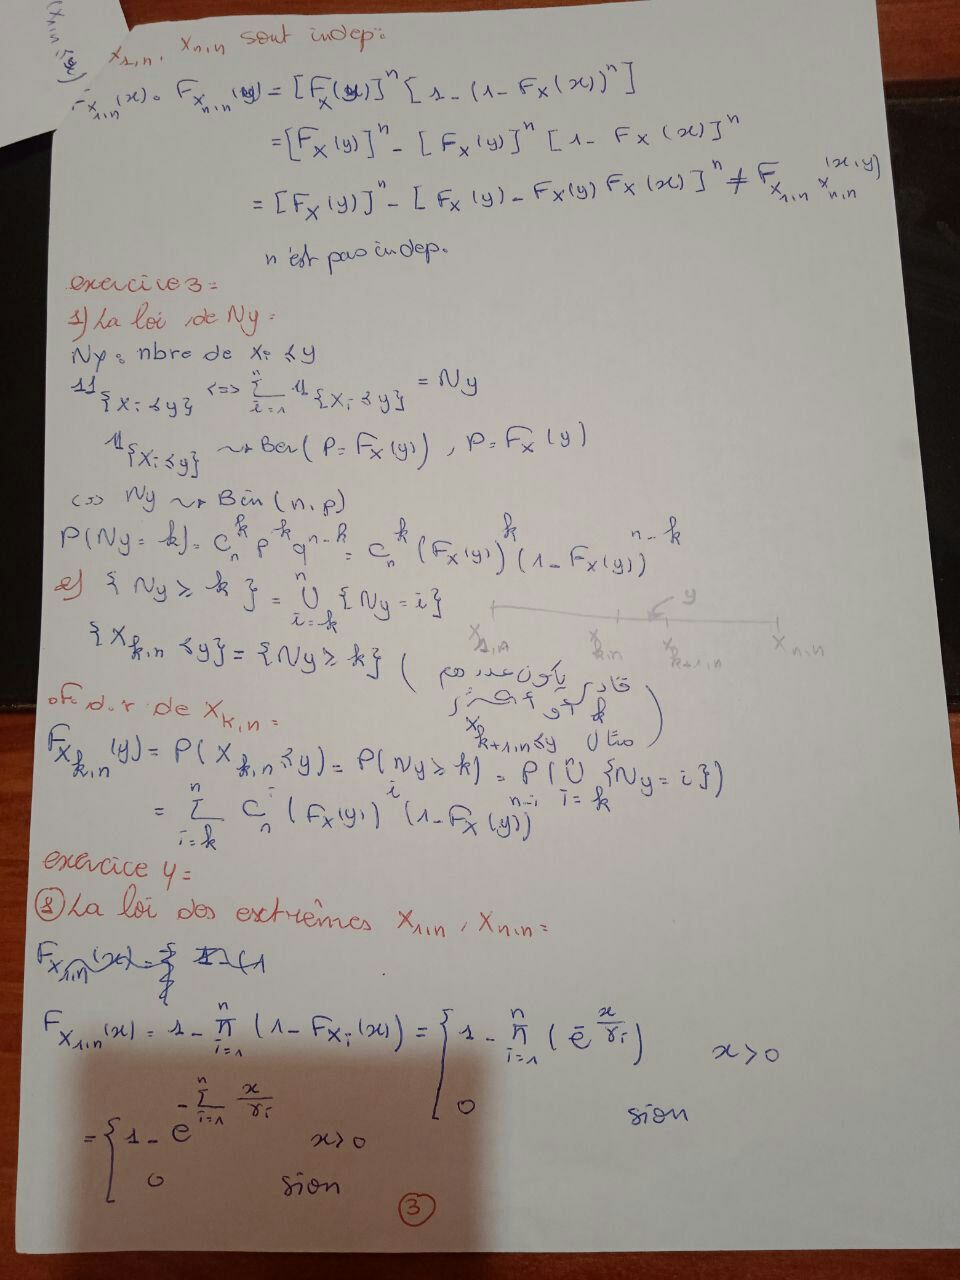 X_{1,n}, X_{n,n} sont indep:
F_{X_{1,n}}(x). F_{X_{n,n}}(y) = [F_X(y)]^n [1 - (1 - F_X(x))^n]
= [F_X(y)]^n - [F_X(y)]^n [1 - F_X(x)]^n
= [F_X(y)]^n - [F_X(y) - F_X(y) F_X(x)]^n ≠ F_{X_{1,n} X_{n,n}}(x,y)
n'est pas indep.
exercice 3 =
1) La loi de Ny =
Ny : nbre de X_i ≤ y
𝟙_{X_i ≤ y} <=> Σ_{i=1}^{n} 𝟙_{X_i ≤ y} = Ny
𝟙_{X_i ≤ y} ~> Ber(P = F_X(y)), P = F_X(y)
<=> Ny ~> Bin(n, p)
P(Ny = k) = C_n^k p^k q^{n-k} = C_n^k (F_X(y))^k (1 - F_X(y))^{n-k}
2) {Ny ≥ k} = ∪_{i=k}^{n} {Ny = i}
y
X_{1,n} X_{k,n} X_{k+1,n} X_{n,n}
{X_{k,n} ≤ y} = {Ny ≥ k} ( قادر يكون عددهم
k أو أكثر
مثال X_{k+1,n} ≤ y )
F d.r de X_{k,n} =
F_{X_{k,n}}(y) = P(X_{k,n} ≤ y) = P(Ny ≥ k) = P(∪_{i=k}^{n} {Ny = i})
= Σ_{i=k}^{n} C_n^i (F_X(y))^i (1 - F_X(y))^{n-i}
exercice 4 =
① La loi des extrêmes X_{1,n}, X_{n,n} =
F_{X_{1,n}}(x) = { 1 - (1
F_{X_{1,n}}(x) = 1 - Π_{i=1}^{n} (1 - F_{X_i}(x)) = { 1 - Π_{i=1}^{n} (e^{-x/γ_i}) x > 0
0 sion
= { 1 - e^{-Σ_{i=1}^{n} x/γ_i} x > 0
0 sion
③